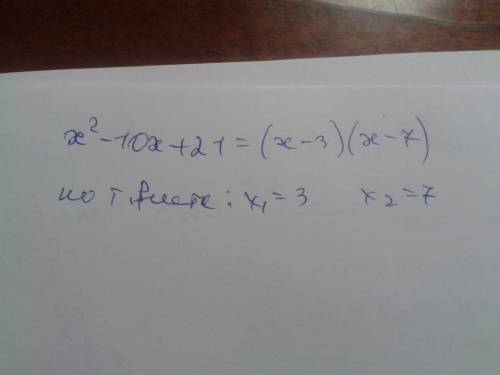 x²-10x+21=(x-3)(x-7)
по т. Виета: x₁=3 x₂=7